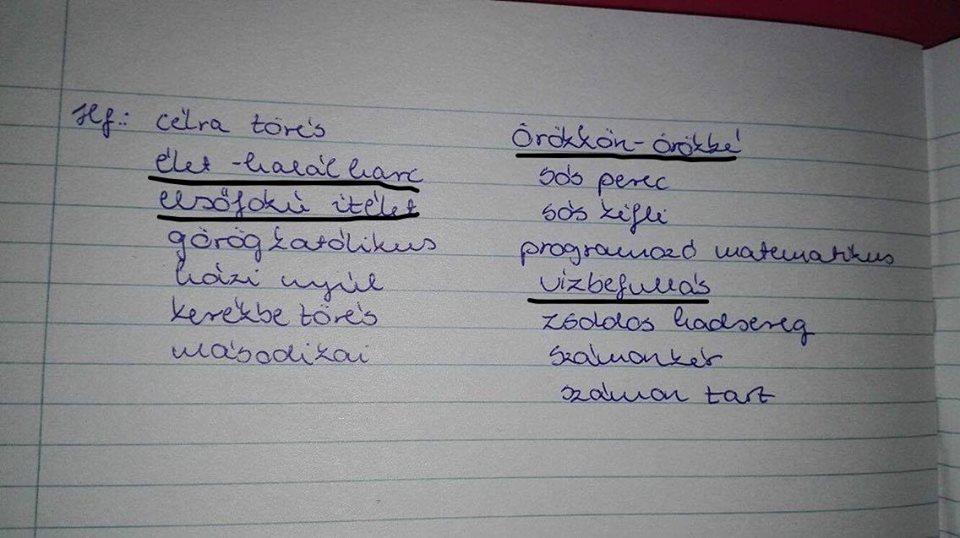 Hf.: célra törés
élet-halál harc
elsőfokú ítélet
görögkatólikus
házi nyúl
kerékbe törés
másodikai
örökkön-örökké
sós perec
sós kifli
programozó matematikus
vízbefúllás
zsoldos hadsereg
számonkér
számon tart